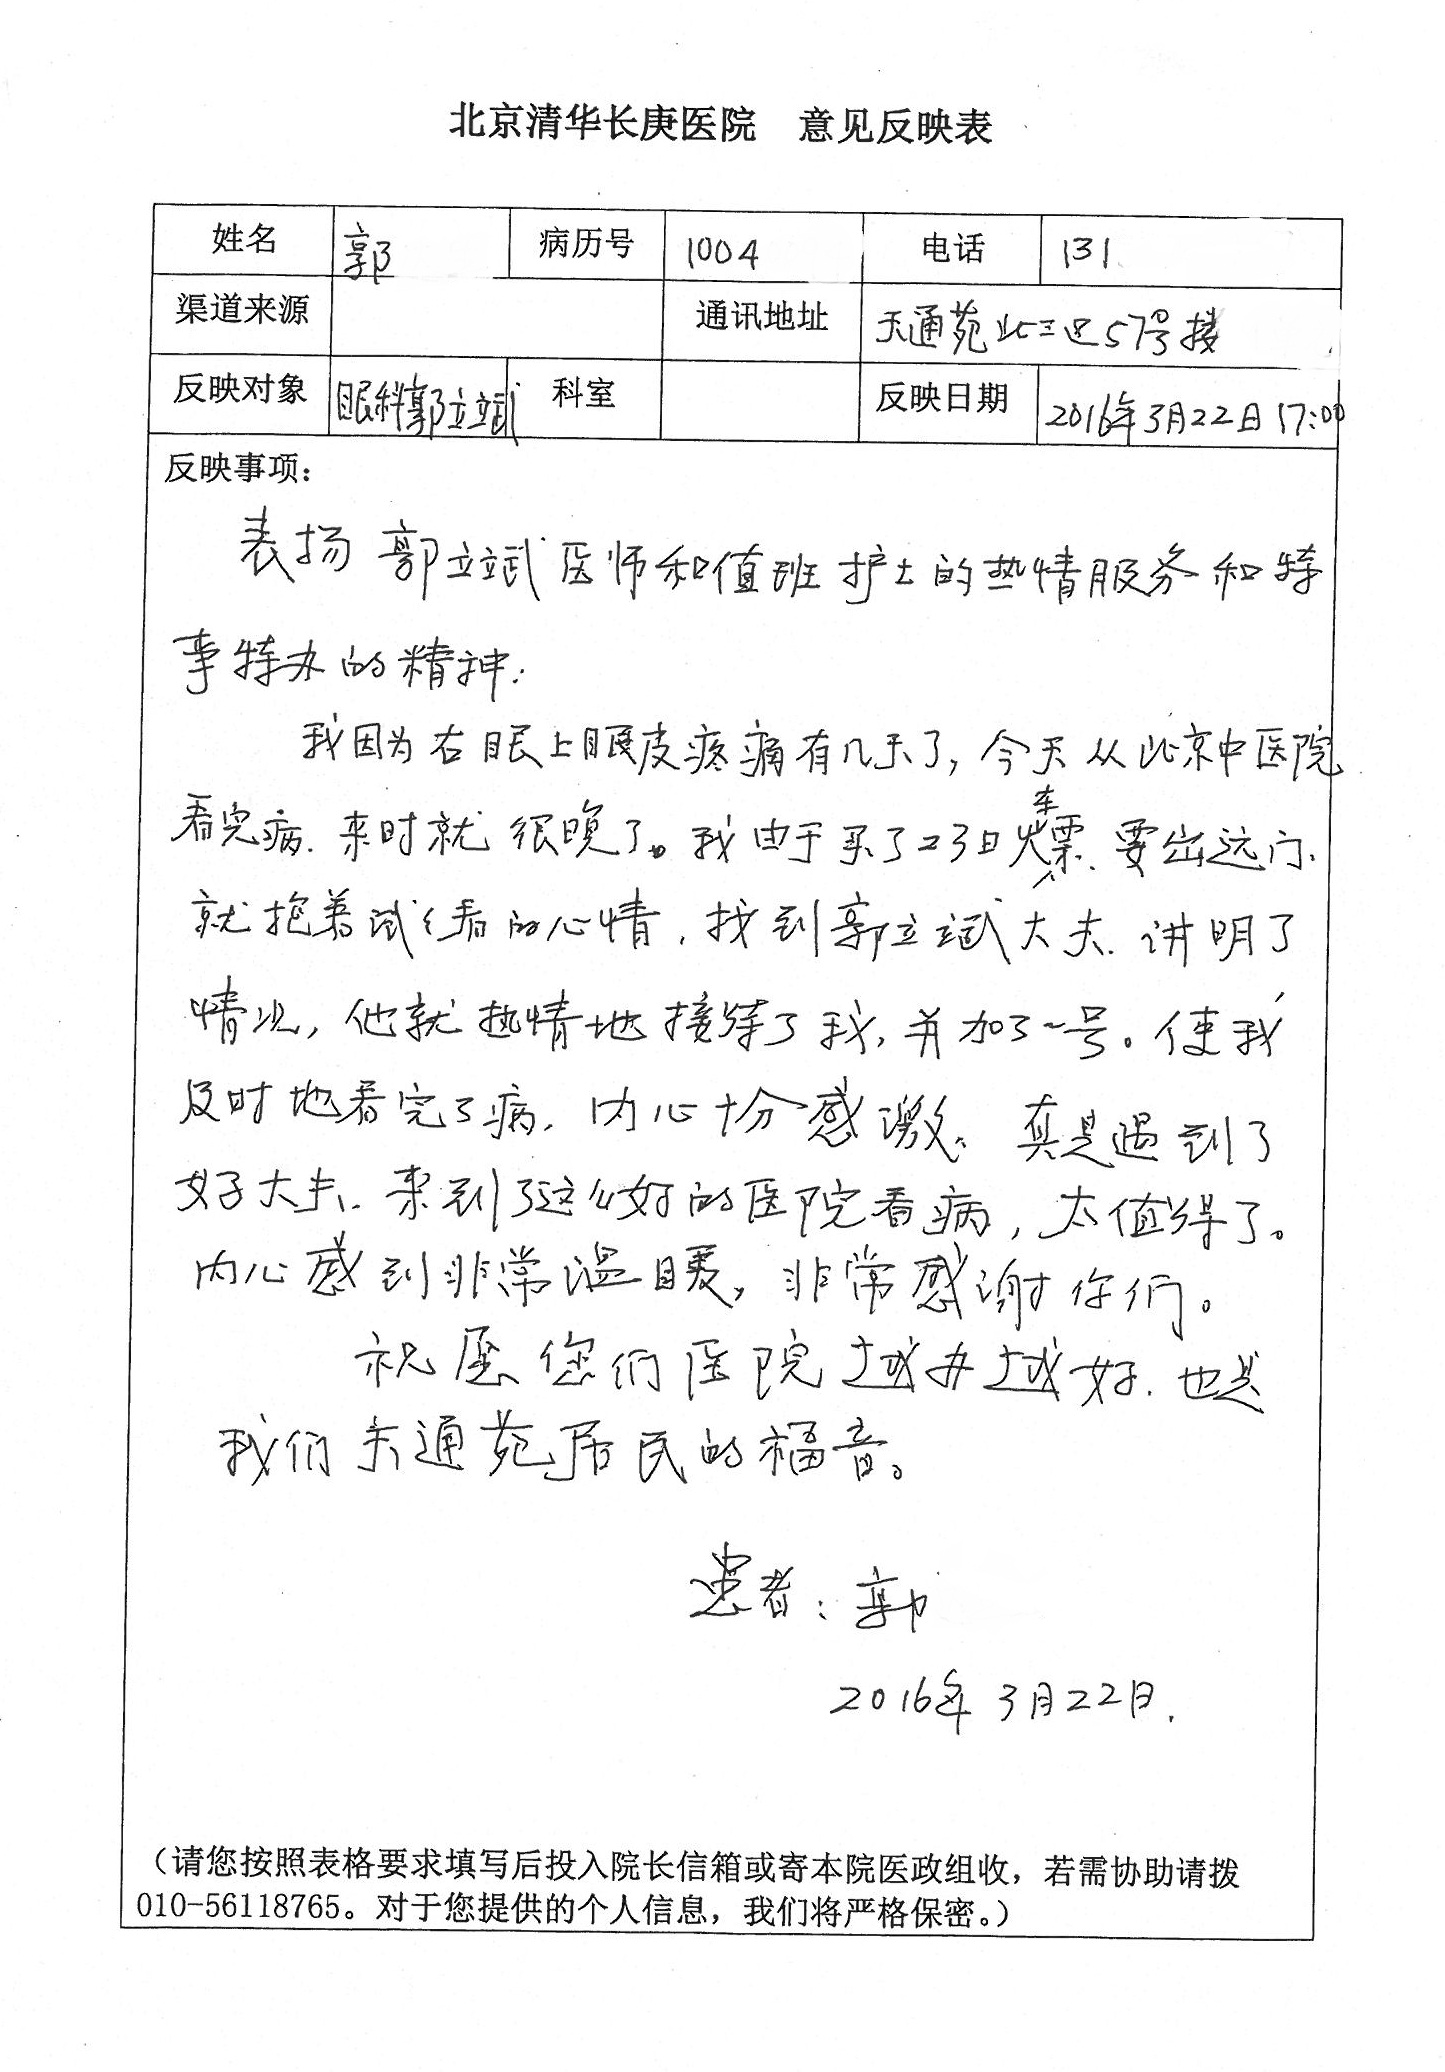 北京清华长庚医院 意见反映表
姓名 郭 病历号 1004 电话 131
渠道来源 通讯地址 天通苑北三区57号楼
反映对象 眼科郭立斌 科室 反映日期 2016年3月22日17:00
反映事项:
表扬郭立斌医师和值班护士的热情服务和特
事特办的精神.
我因为右眼上眼皮疼痛有几天了,今天从北京中医院
看完病.来时就很晚了。我由于买了23日火车票.要出远门.
就抱着试试看的心情,找到郭立斌大夫.讲明了
情况,他就热情地接待了我,并加了一号。使我
及时地看完了病.内心十分感激.真是遇到了
好大夫.来到了这么好的医院看病,太值得了。
内心感到非常温暖,非常感谢你们。
祝愿您们医院越办越好.也是
我们天通苑居民的福音。
患者:郭
2016年3月22日.
(请您按照表格要求填写后投入院长信箱或寄本院医政组收,若需协助请拨
010-56118765。对于您提供的个人信息,我们将严格保密。)